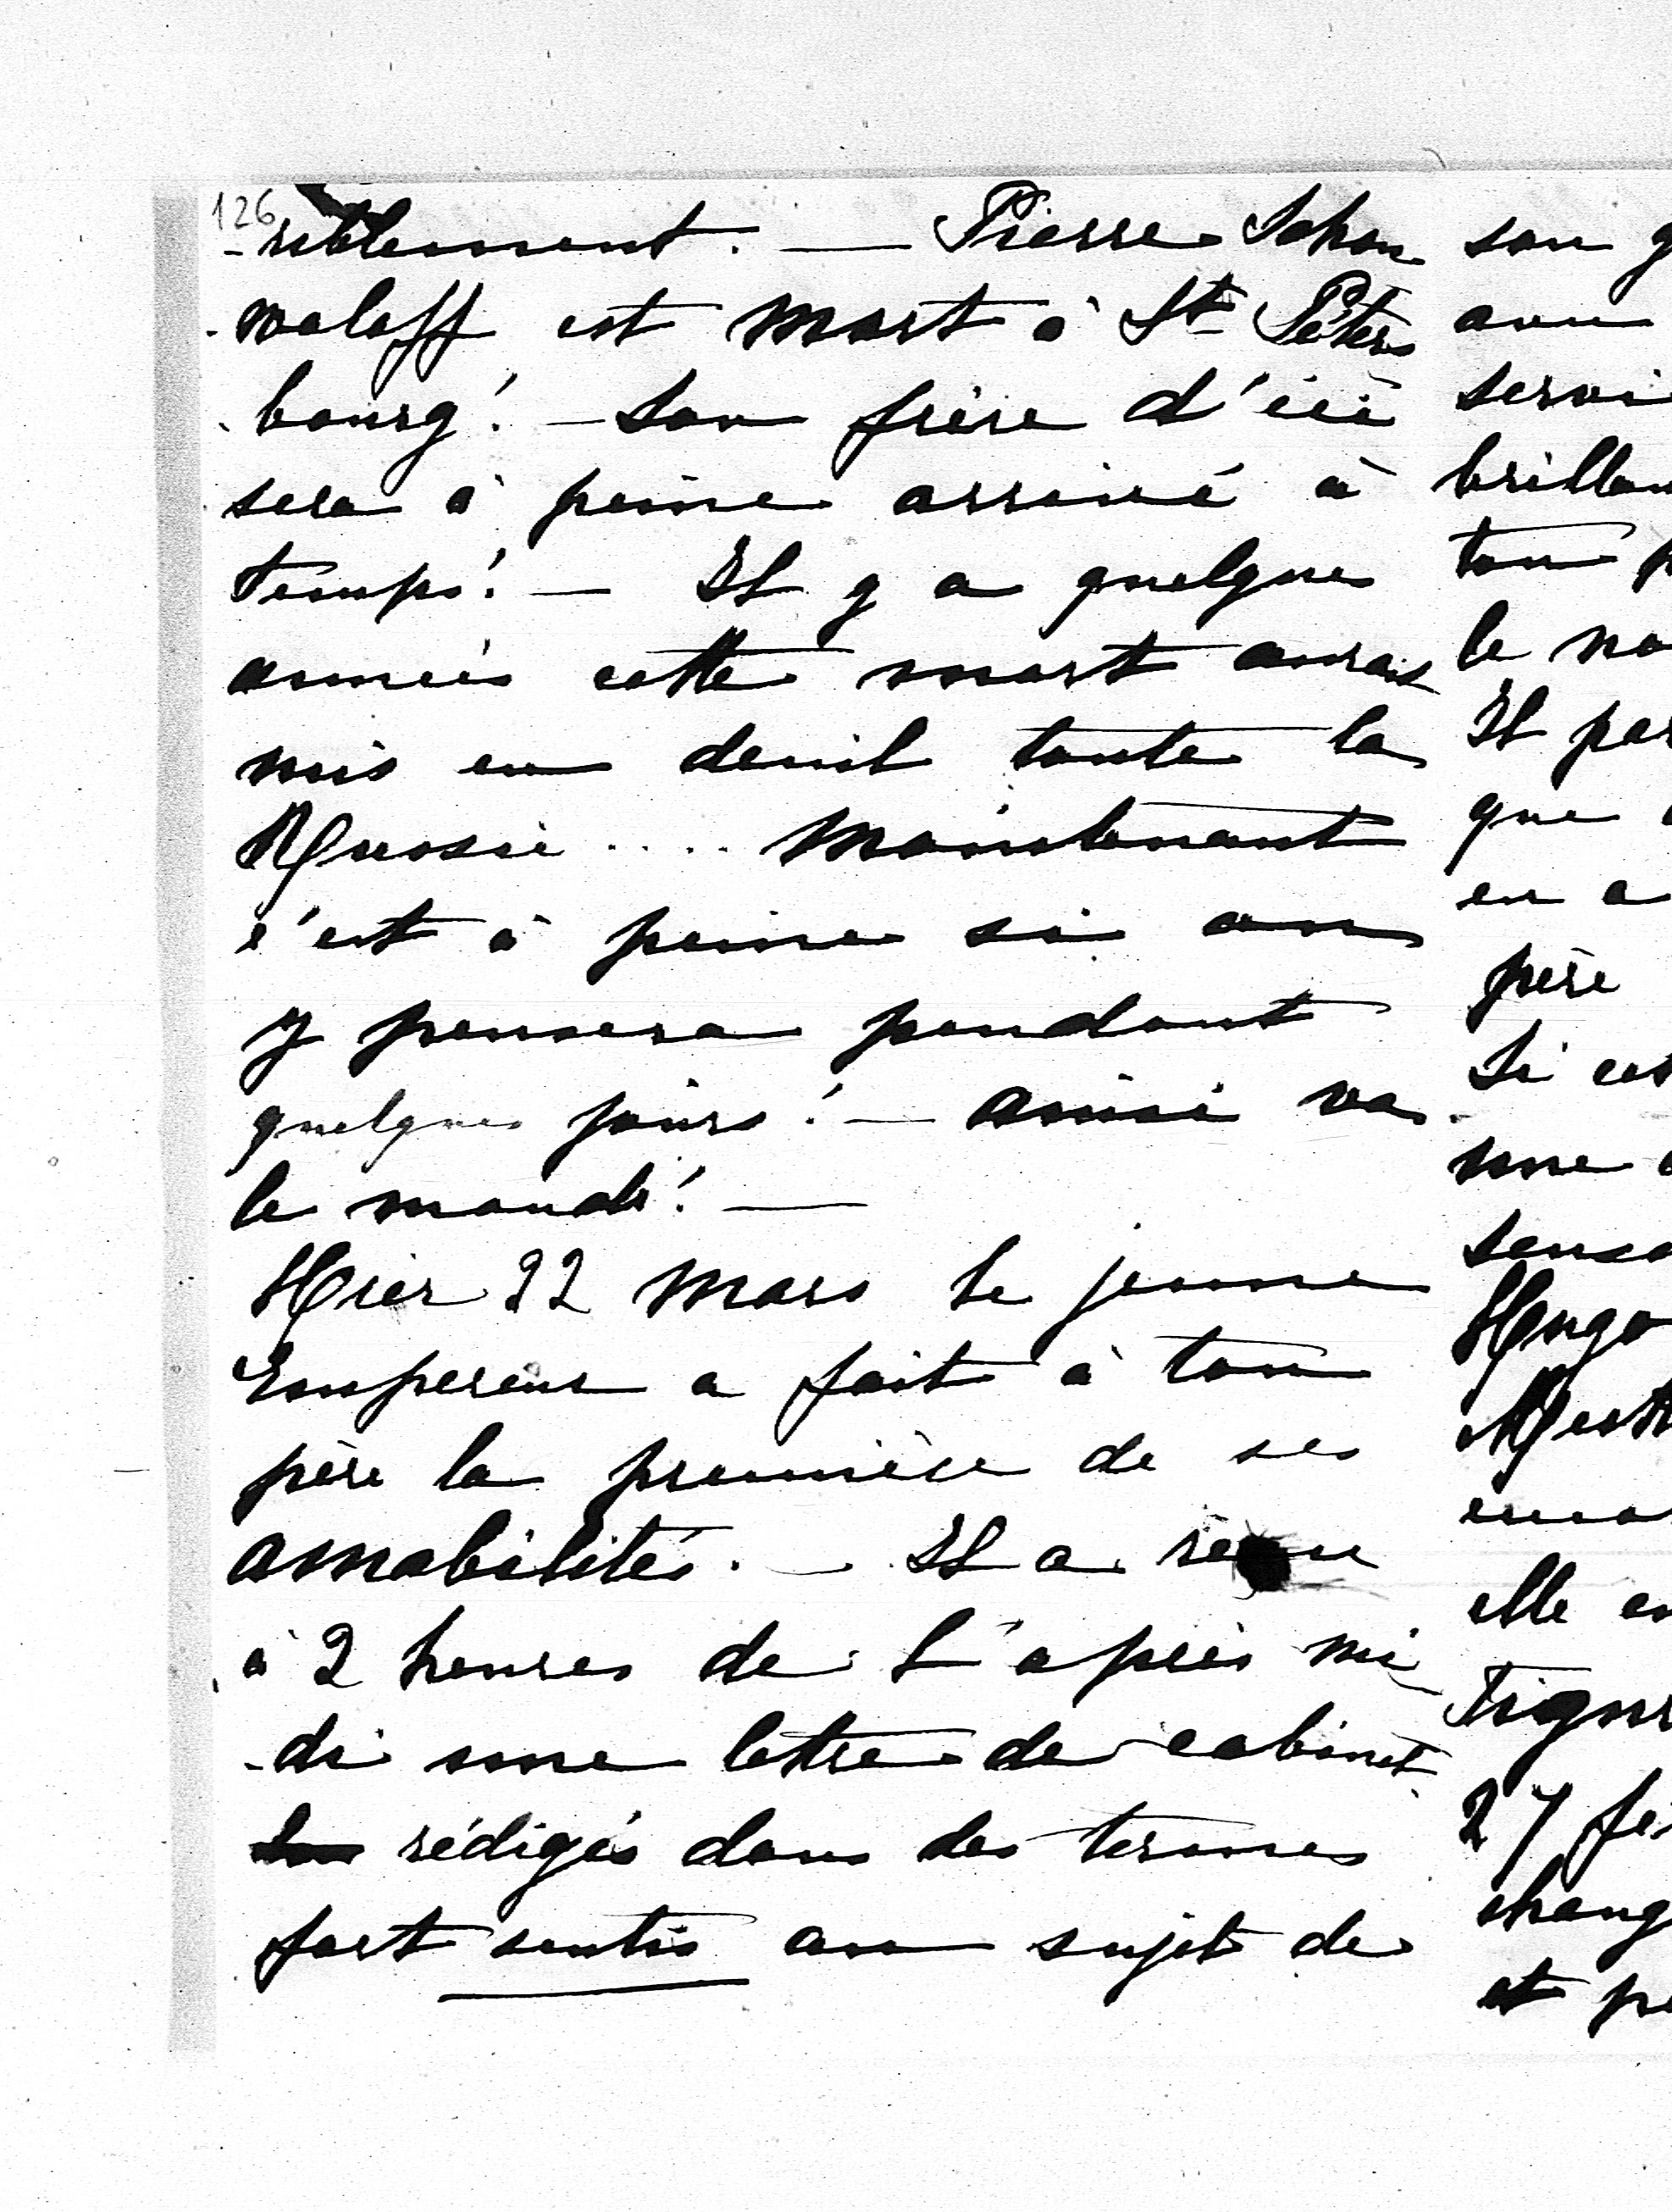 126
-riblement. — Pierre Schou
-waloff est mort à St Péters
-bourg! — Son frère d'ici
sera à peine arrivé à
temps! — Il y a quelques
années cette mort aurait
mis en deuil toute la
Russie .... Maintenant
c'est à peine si on
y pensera pendant
quelques jours! — Ainsi va
le monde! —
Hier 22 Mars le jeune
Empereur a fait à ton
père la première de ses
amabilités. — Il a reçu
à 2 heures de l'après mi
-di une lettre de cabinet
rédigés dans des termes
fort sentis au sujet de
son g
servi
brillan
ton p
le no
Il par
que
en a
père
Si cet
une
sensa
Hugo
elle en
27 fé
chang
et pe